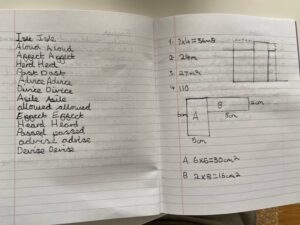 Isle Isle
Aloud Aloud
Affect Affect
Herd Herd
Past Past
Advice Advice
Device Device
Aisle Aisle
allowed allowed
Effect Effect
Heard Heard
Passed passed
advise advise
Devise Devise
1.
2. 24cm
3.
4. 110
A
B
2cm
8cm
5cm
A 6x5=30cm2
B 2x8=16cm2